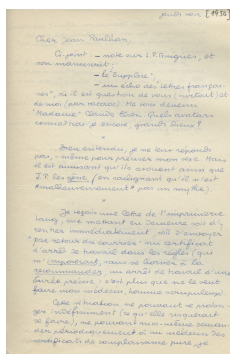 [1956]
Cher Jean Paulhan,
Ci-joint : — note sur J.P. Bruguès, et
son manuscrit ;
— le "Supplice",
— un écho des Lettres françai-
ses, où il est question de vous (surtout) et
de moi (par raccroc). Me voici devenu
"Madame" Claude Elsen. Quels avatars
connaîtrai-je encore, grands Dieux ?
*
Bien entendu, je ne leur réponds
pas, même pour préciser mon sexe. Mais
il est amusant qu'ils avouent ainsi que
J.P. les gêne, (en soulignant qu'il n'est
"malheureusement" pas un mythe).
*
Je reçois une lettre de l'imprimerie
me mettant en demeure soit de
rentrer immédiatement soit d'envoyer
par retour du courrier un certificat
d'arrêt de travail dans les règles (qui
m'imposerait, sans se borner à la
recommander, un arrêt de travail d'une
durée précise : c'est plus que ne le veut
faire mon médecin, homme scrupuleux).
Cette situation ne pouvant se prolon-
ger indéfiniment (ce qu'elle risquerait
de faire), ne pouvant moi-même deman-
der périodiquement à un médecin des
certificats de complaisance pure, je